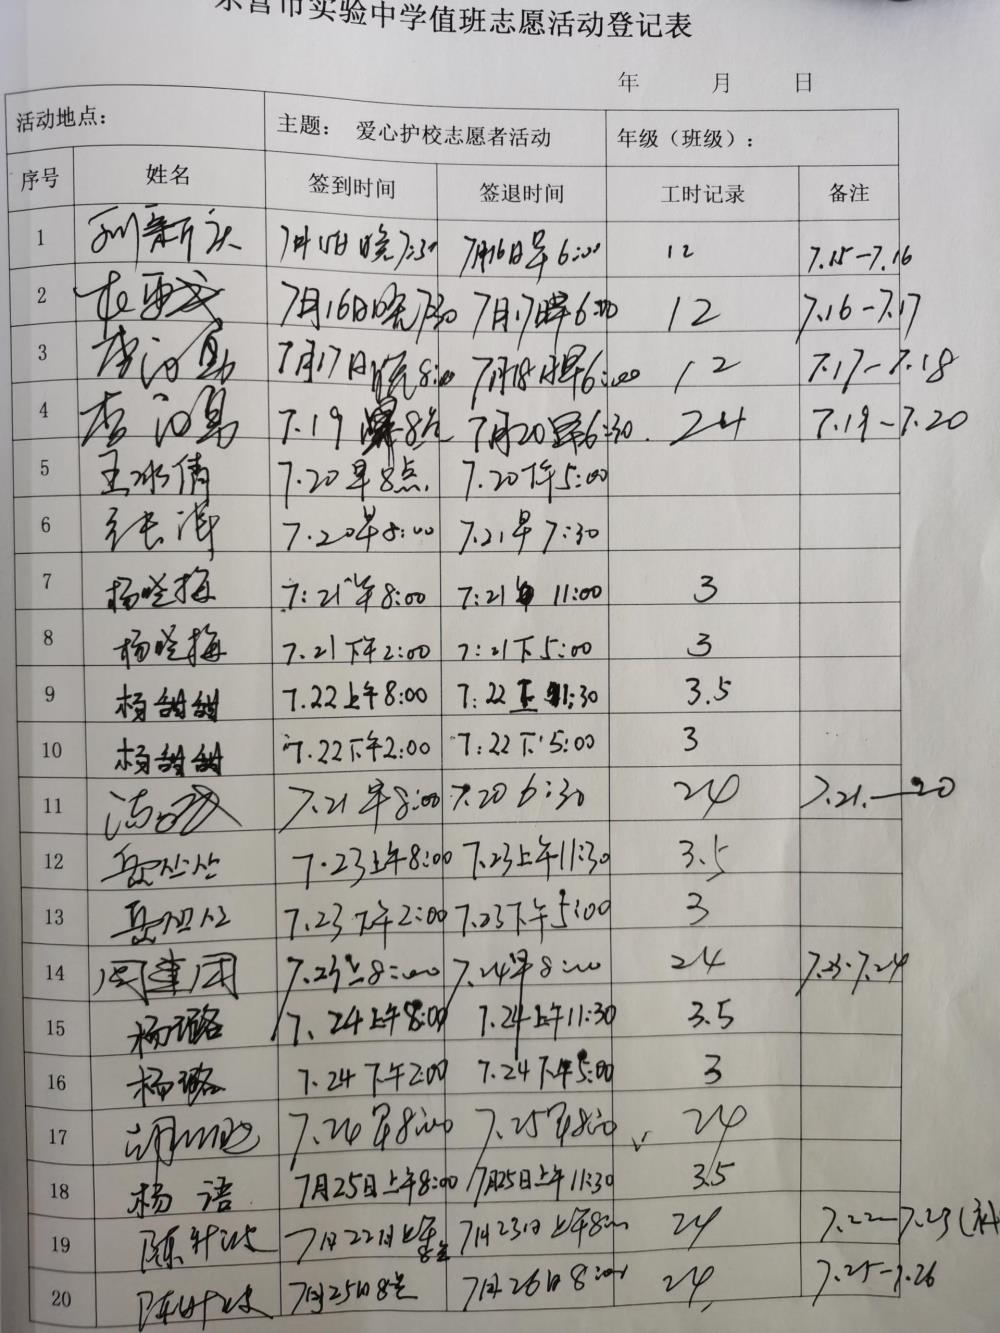 东营市实验中学值班志愿活动登记表
年 月 日
活动地点： 主题： 爱心护校志愿者活动 年级（班级）：
序号 姓名 签到时间 签退时间 工时记录 备注
1 新 7月15日晚7:30 7月16日早6:00 12 7.15-7.16
2 7月16日晚7:30 7月17日早6:00 12 7.16-7.17
3 7月17日晚8:00 7月18日早6:00 12 7.17-7.18
4 7.19 8点 7月20早6:30 24 7.19-7.20
5 王冰倩 7.20早8点 7.20下午5:00
6 张涛 7.20早8:00 7.21早7:30
7 杨晓梅 7:21上午8:00 7:21 11:00 3
8 杨晓梅 7.21下午2:00 7:21下5:00 3
9 杨甜甜 7.22上午8:00 7:22上11:30 3.5
10 杨甜甜 7.22下午2:00 7:22下5:00 3
11 7.21早8:00 7.20 6:30 24 7.21.—20
12 7.23上午8:00 7.23上午11:30 3.5
13 7.23下午2:00 7.23下午5:00 3
14 7.23上8:00 7.24早8:00 24 7.23-7.24
15 杨璐 7.24上午8:00 7.24上午11:30 3.5
16 杨璐 7.24下午2:00 7.24下午5:00 3
17 7.24早8:00 7.25早8:00 24
18 杨语 7月25日上午8:00 7月25日上午11:30 3.5
19 陈 7月22日上午8点 7月23日上午8:00 24 7.22-7.23(补
20 陈 7月25日8点 7月26日8:00 24 7.25-7.26